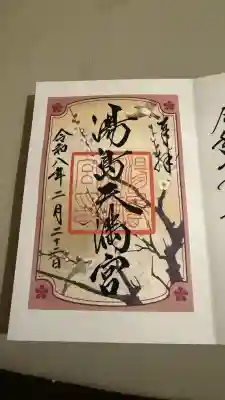 奉拝
湯島天満宮
令和八年二月二十二日